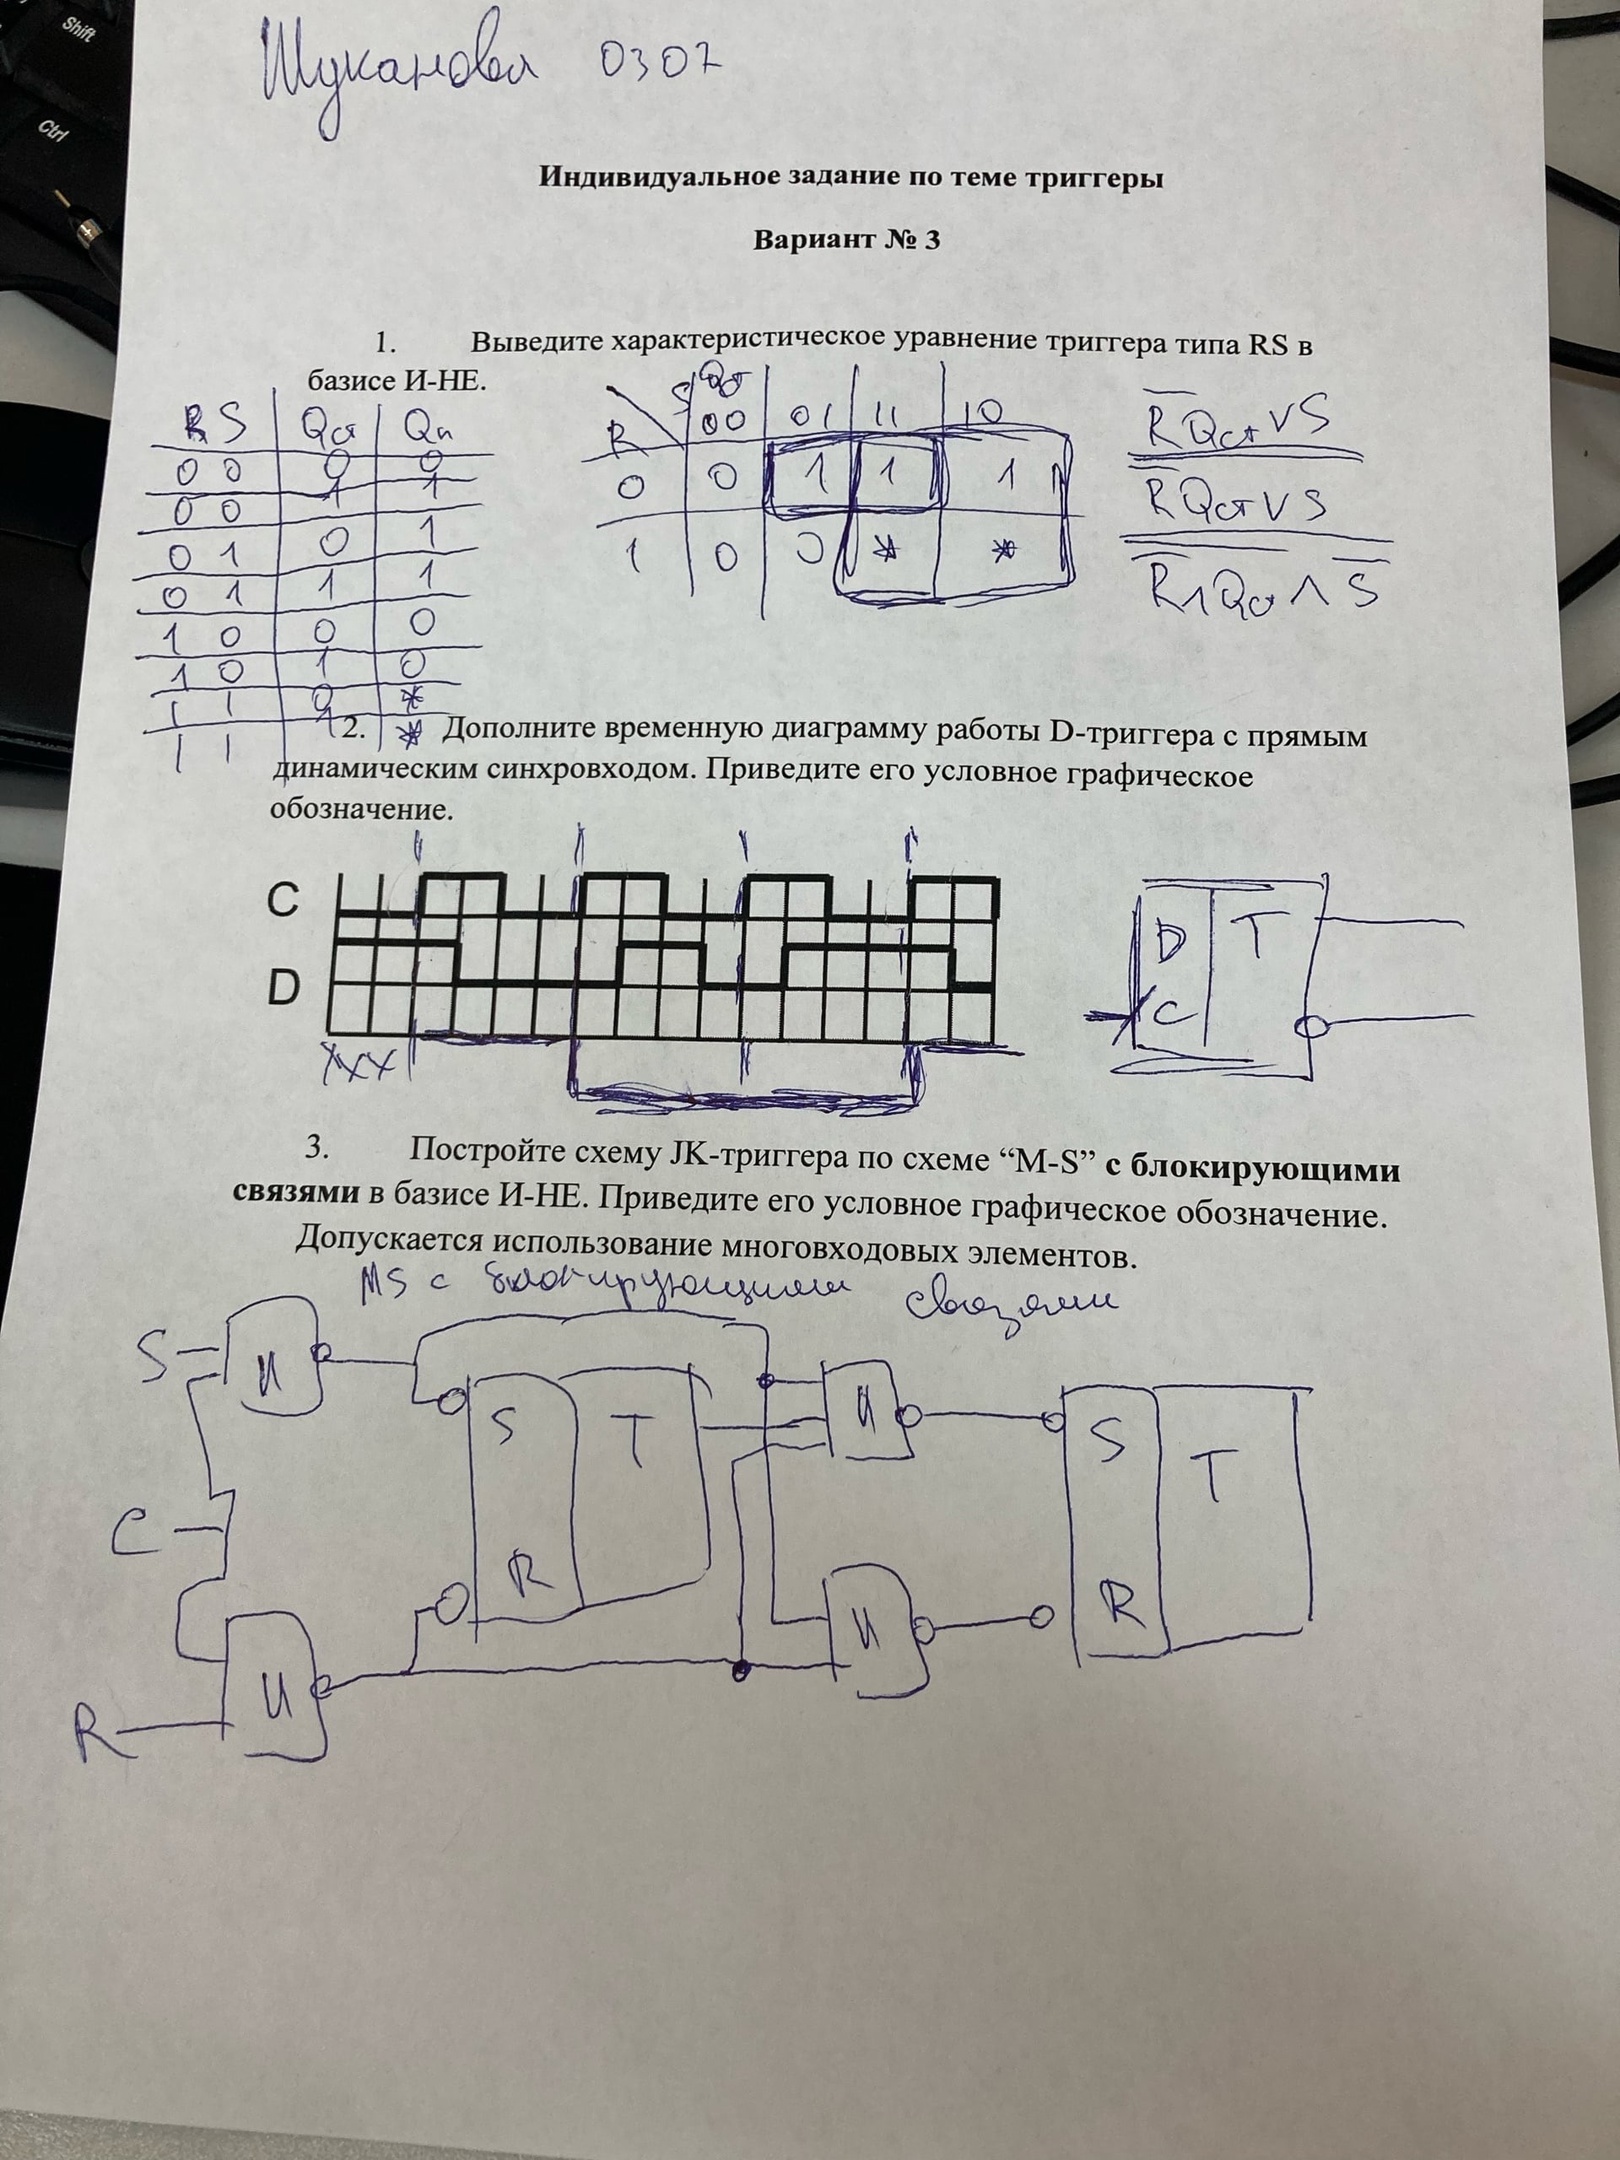 Shift
Ctrl
Шуканова 0307
Индивидуальное задание по теме триггеры
Вариант № 3
1. Выведите характеристическое уравнение триггера типа RS в
базисе И-НЕ.
R S Qст Qн
0 0 0 0
0 0 1 1
0 1 0 1
0 1 1 1
1 0 0 0
1 0 1 0
1 1 0 *
1 1 1 *
R S Qст
00 01 11 10
0 0 1 1 1
1 0 0 * *
R Qст ∨ S
R Qст ∨ S
R ∧ Qст ∧ S
2. Дополните временную диаграмму работы D-триггера с прямым
динамическим синхровходом. Приведите его условное графическое
обозначение.
C
D
XXX
D T
C
3. Постройте схему JK-триггера по схеме “M-S” с блокирующими
связями в базисе И-НЕ. Приведите его условное графическое обозначение.
Допускается использование многовходовых элементов.
MS с блокирующими связями
S И
S T И S T
C
R И R
R И